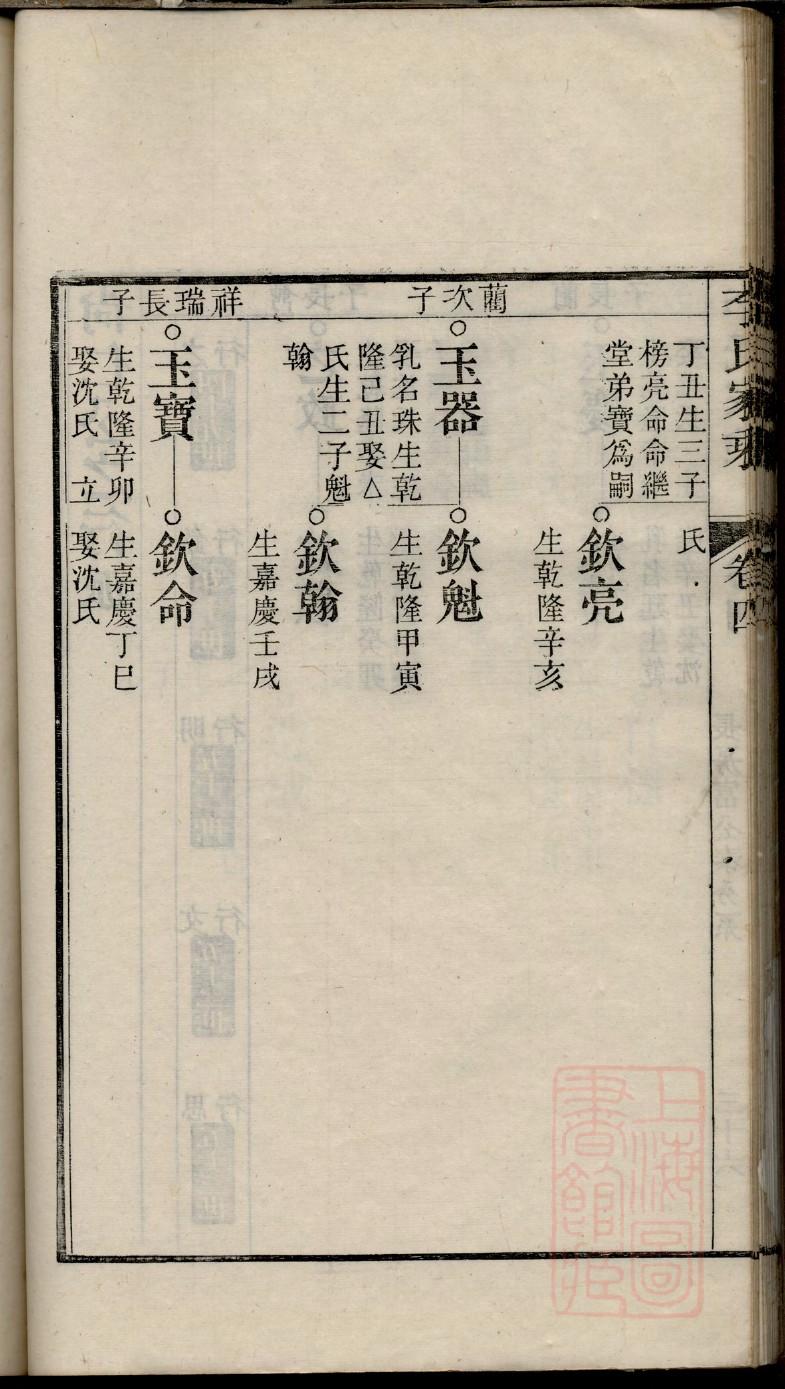 李氏家乘
卷四
丁丑生三子
榜亮命命繼
堂弟寶為嗣
氏
欽亮
生乾隆辛亥
藺次子
玉器
乳名珠生乾
隆己丑娶△
氏生二子魁
翰
欽魁
生乾隆甲寅
欽翰
生嘉慶壬戌
祥瑞長子
玉寶
生乾隆辛卯
娶沈氏 立
欽命
生嘉慶丁巳
娶沈氏
上海圖
書館藏